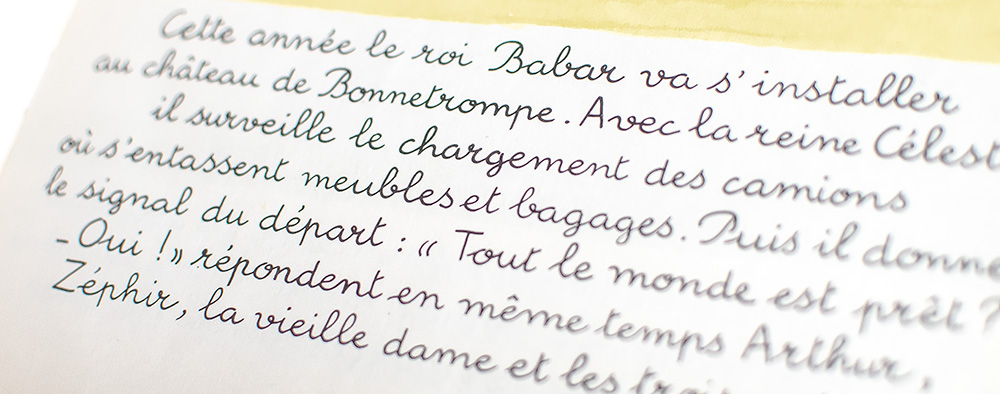 Cette année le roi Babar va s'installer
au château de Bonnetrompe. Avec la reine Célest
il surveille le chargement des camions
où s'entassent meubles et bagages. Puis il donne
le signal du départ : « Tout le monde est prêt ?
- Oui ! » répondent en même temps Arthur,
Zéphir, la vieille dame et les troi